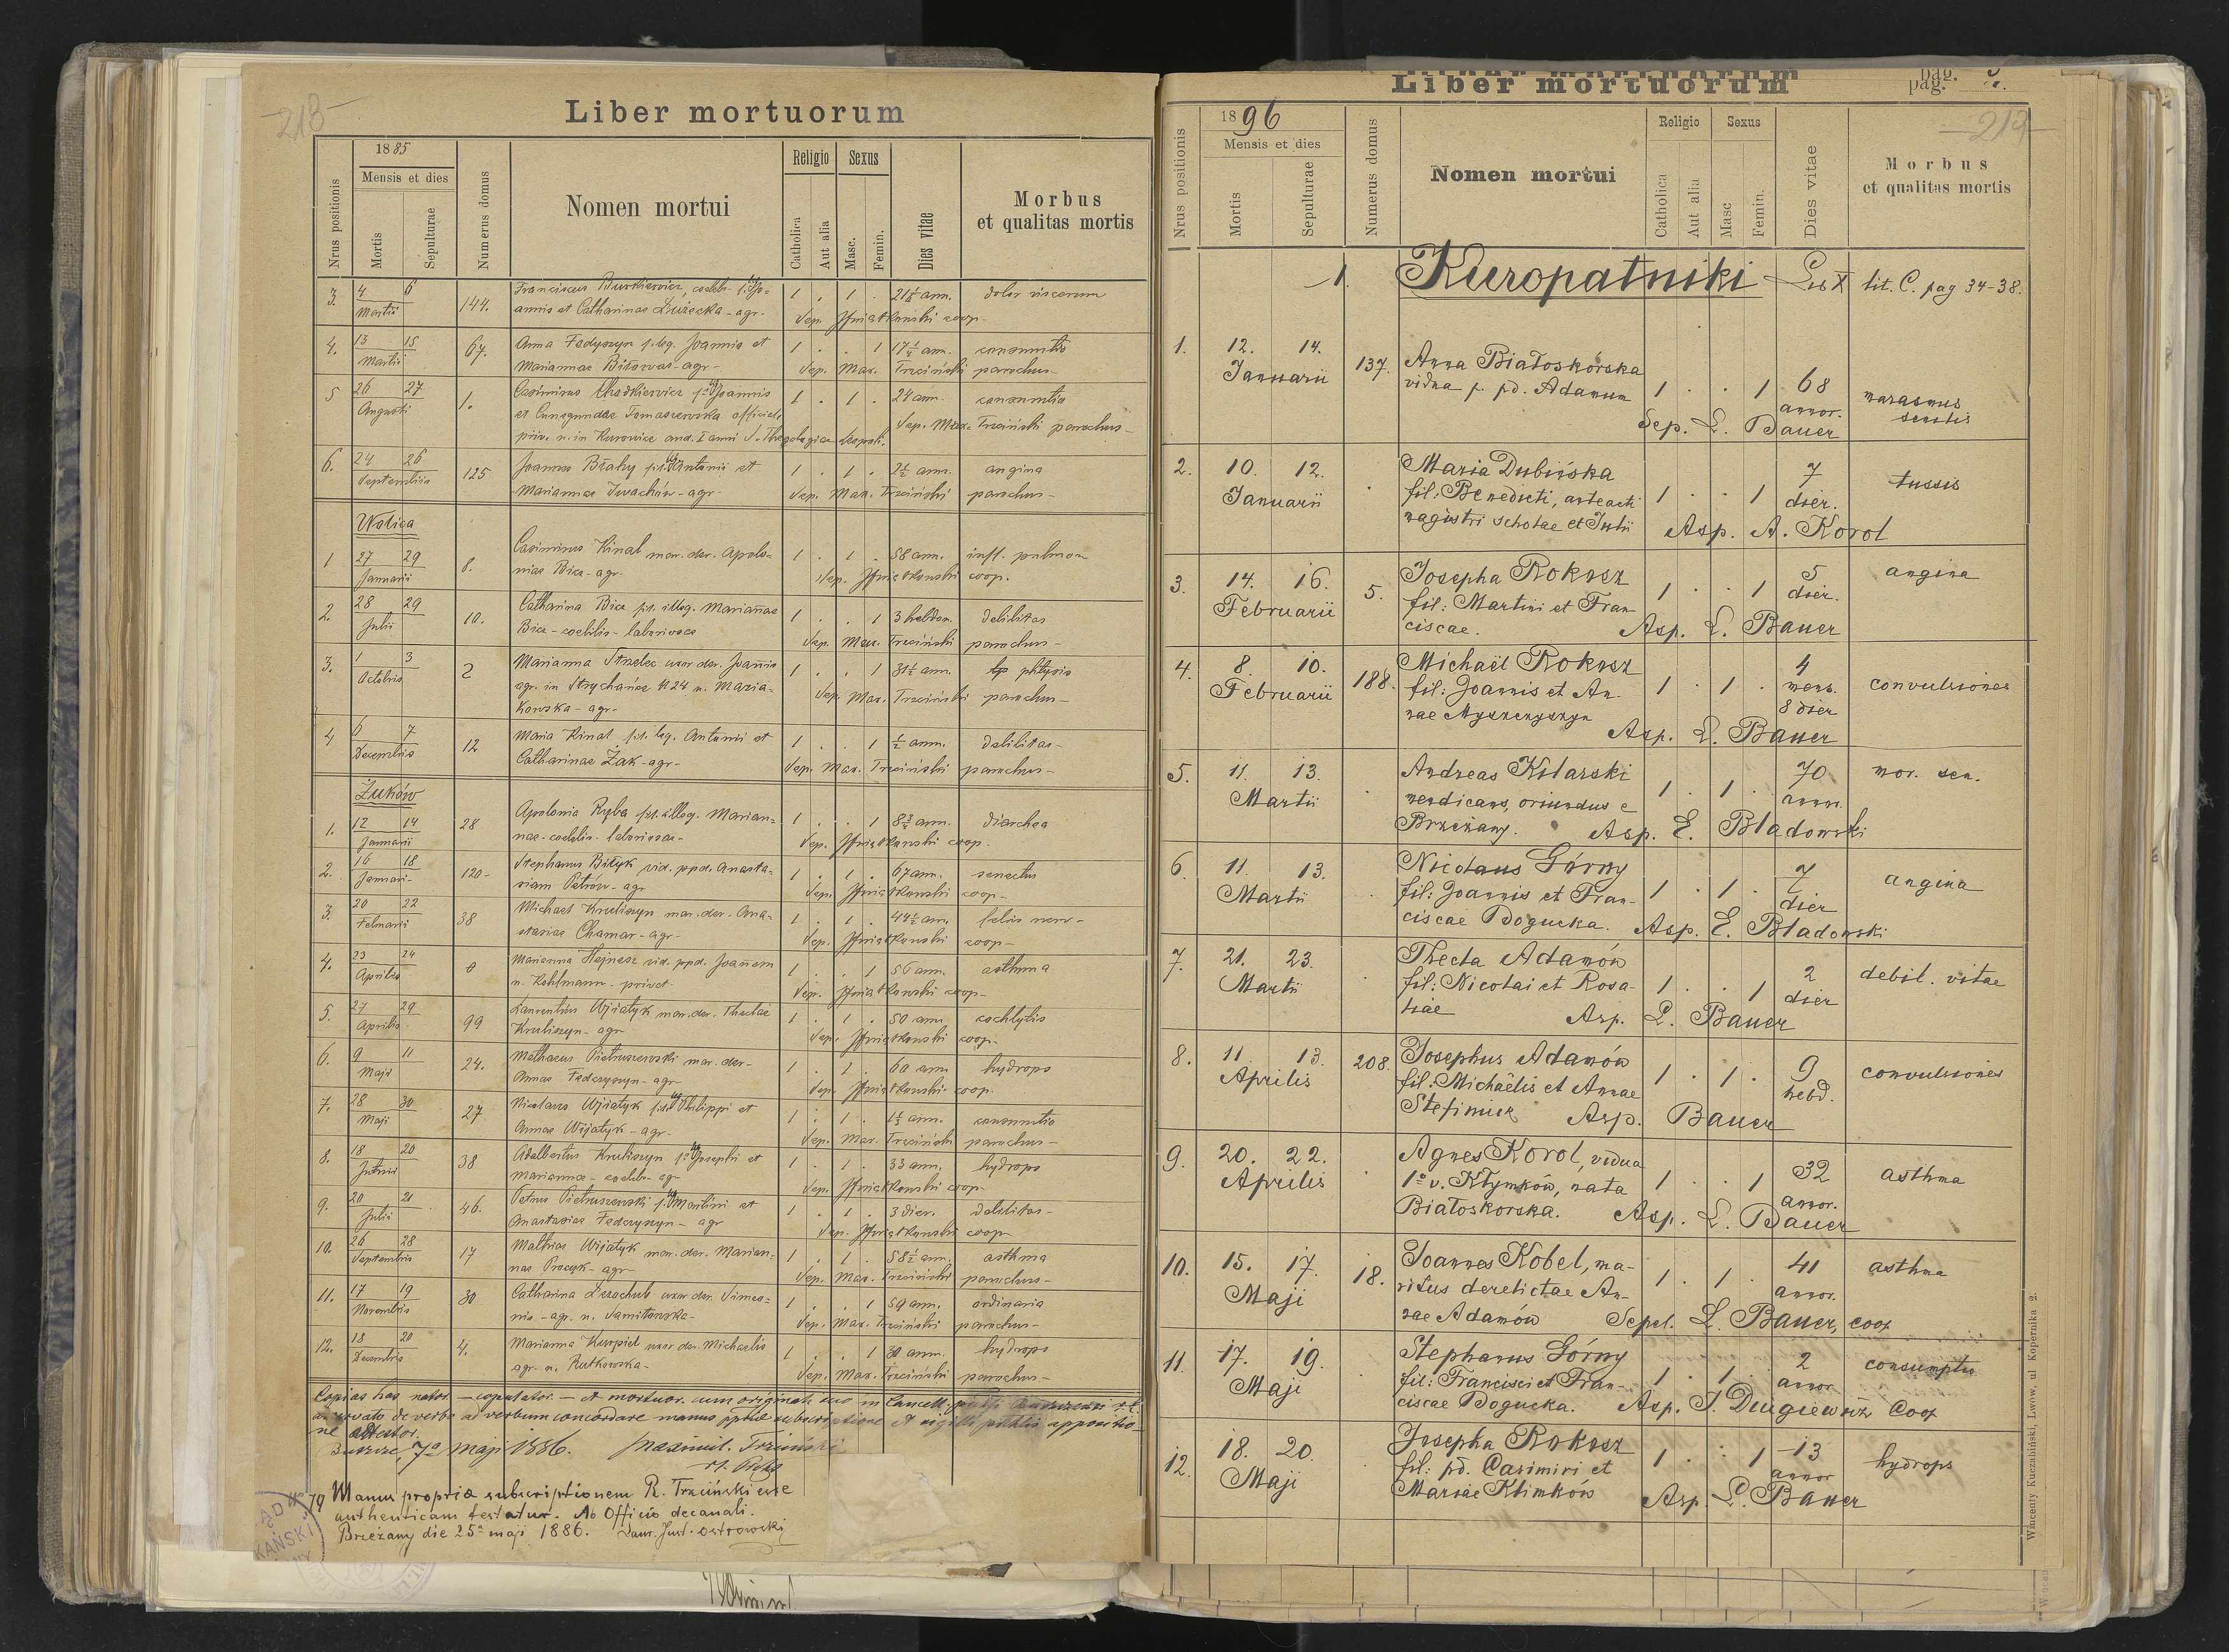 213
Liber mortuorum
Nrus positionis
1885
Mensis et dies
Mortis
Sepulturae
Numerus domus
Nomen mortui
Religio
Catholica
Aut alia
Sexus
Masc.
Femin.
Dies vitae
Morbus
et qualitas mortis
3. 4 6 Martii 144. Franciscus coeleb. f. leg. Jo=
annis et Catharinae Łużecka - agr. 1 . 1 . 21½ ann. dolor viscerum
Sep. coop.
4. 13 15 Martii 67. Anna Fedyszyn f. leg. Joannis et
Mariannae - agr. 1 . . 1 17¼ ann. consumtio
Sep. Max. Trzciński parochus
5 26 27 Augusti 1. Casimirus Chodkiewicz f. leg. Joannis
et Cunegundae Tomaszewska
1 . 1 . 24 ann. consumtio
priv. n. in Kurowice aud. I anni S. Theologiae Leopoli. Sep. Max. Trzciński parochus
6. 24 26 Septembris 125 Joannes Biały fil. leg. Antonii et
Mariannae Iwachów - agr. 1 . 1 . 2½ ann. angina
Sep. Max. Trzciński parochus
Wolica
1 27 29 Januarii 8. Casimirus Kinal mar. der. Apolo=
niae Bica - agr. 1 . 1 . 58 ann. infl. pulmon
Sep. coop.
2. 28 29 Julii 10. Catharina Bica fil. illeg. Mariannae
Bica - coelibis - laboriosae 1 . . 1 3 hebdom. debilitas
Sep. Max. Trzciński parochus
3. 1 3 Octobris 2 Marianna Strzelec uxor der. Joannis
agr. in Strychańce # 24 n. Maria=
kowska - agr. 1 . . 1 31½ ann. phtysis
Sep. Max. Trzciński parochus
4 6 7 Decembris 12 Maria Kinal fil. leg. Antonii et
Catharinae Żak - agr. 1 . . 1 ½ ann. debilitas
Sep. Max. Trzciński parochus
Żuków
1. 12 14 Januarii 28 Apolonia Ryba fil. illeg. Marian=
nae - coelibis - laboriosae 1 . . 1 8¾ ann. diarhea
Sep. coop.
2. 16 18 Januari 120 Stephanus Bityk vid. ppd. Anasta=
siam Petrów - agr 1 . 1 . 67 ann. senectus
Sep. coop
3. 20 22 Februarii 38 Michael Kruliszyn mar. der. Ana=
stasiae Chamar - agr. 1 . 1 . 44½ ann. febris nerv
Sep. coop
4. 23 24 Aprilis 8 Marianna Hejnesz vid. ppd. Joannem
n. Kohlmann - privat. 1 . . 1 56 ann. asthma
Sep. coop
5. 27 29 Aprilis 99 Laurentius Wijatyk mar. der. Theclae
Kruliszyn - agr 1 . 1 . 50 ann
Sep. coop
6. 9 11 Maji 24. Mathaeus Pietruszewski mar. der.
Annae Federyszyn - agr 1 . 1 . 60 ann hydrops
Sep. coop.
7. 28 30 Maji 27 Nicolaus Wijatyk fil. leg. Philippi et
Annae Wijatyk - agr. 1 . 1 . 1½ ann. consumtio
Sep. Max. Trzciński parochus
8. 18 20 38 Adalbertus Kruliszyn f. leg. Josephi et
Mariannae - coeleb. agr 1 . 1 . 33 ann. hydrops
Sep. coop
9. 20 21 Julii 46. Petrus Pietruszewski f. leg. Martini et
Anastasiae Federyszyn - agr 1 . 1 . 3 dier. debilitas
Sep. coop
10. 26 28 Septembris 17 Mathias Wijatyk mar. der. Marian=
nae Procyk - agr 1 . 1 . 58½ ann. asthma
Sep. Max. Trzciński parochus
11. 17 19 Novembris 30 Catharina Lezochub uxor der. Simeo=
nis - agr. n. Samitowska 1 . . 1 59 ann. ordinaria
Sep. Max. Trzciński parochus
12. 18 20 Decembris 4. Marianna Kurpiel uxor der. Michaelis
agr. n. Rutkowska 1 . . 1 30 ann. hydrops
Sep. Max. Trzciński parochus
Copias has nator. - copulator. - et mortuor. cum originali suo in Cancell.
de verbo ad verbum concordare manus pptae subscriptione et sigilli pchlis appositio=
ne attestor.
Buszcze, 7ª Maji 1886. Maximil. Trzciński
79 Manus propria subscriptionem R. Trzciński esse
authenticam testatur. Ab Officio decanali.
Brzeżany die 25ª maji 1886. Laur. Just. Ostrowski
Liber mortuorum
pag.
214
Nrus positionis
1896
Mensis et dies
Mortis
Sepulturae
Numerus domus
Nomen mortui
Religio
Catholica
Aut alia
Sexus
Masc
Femin.
Dies vitae
Morbus
et qualitas mortis
1. Kuropatniki Lib X lit. C. pag 34-38.
1. 12. 14. Januarii 137. Anna Białoskórska
vidua p. pd. Adamum 1 . . 1 68 annor. marasmus senilis
Sep. L. Bauer
2. 10. 12. Januarii . Maria Dubińska
fil: Benedicti, anteacti
magistri scholae et Julii 1 . . 1 7 dier. tussis
Asp. A. Korol
3. 14. 16. Februarii 5. Josepha Rokosz
fil: Martini et Fran-
ciscae. 1 . . 1 5 dier. angina
Asp. L. Bauer
4. 8. 10. Februarii 188. Michaël Rokosz
fil: Joannis et An-
nae Myszczyszyn 1 . 1 . 4 mens. 8 dier convulsiones
Asp. L. Bauer
5. 11. 13. Martii . Andreas Kilarski
mendicans, oriundus e
Brzeżany. 1 . 1 . 70 annor. mar. sen.
Asp. E. Bladowski
6. 11. 13. Martii . Nicolaus Górny
fil: Joannis et Fran-
ciscae Bogucka. 1 . 1 . 7 dier angina
Asp. E. Bladowski
7. 21. 23. Martii . Thecla Adamów
fil: Nicolai et Rosa-
liae 1 . . 1 2 dier debil. vitae
Asp. L. Bauer
8. 11 13. Aprilis 208. Josephus Adamów
fil: Michaëlis et Annae
1 . 1 . 9 hebd. convulsiones
Asp. Bauer
9. 20. 22. Aprilis Agnes Korol, vidua
1º v. Kłymków, nata
Białoskorska. 1 . . 1 32 annor. asthma
Asp. L. Bauer
10. 15. 17. Maji 18. Joannes Kobel, ma-
ritus derelictae An-
nae Adamów 1 . 1 . 41 annor. asthma
Sepel. L. Bauer, coop
11. 17. 19. Maji . Stephanus Górny
fil: Francisci et Fran-
ciscae Bogucka. 1 . 1 . 2 annor consumptio
Asp. J. Długiewicz Coop
12. 18. 20. Maji . Josepha Rokosz
fil: pd. Casimiri et
Mariae Klimków 1 . . 1 13 annor hydrops
Asp. L. Bauer
Wincenty Kuczabiński, Lwów, ul Kopernika 2.